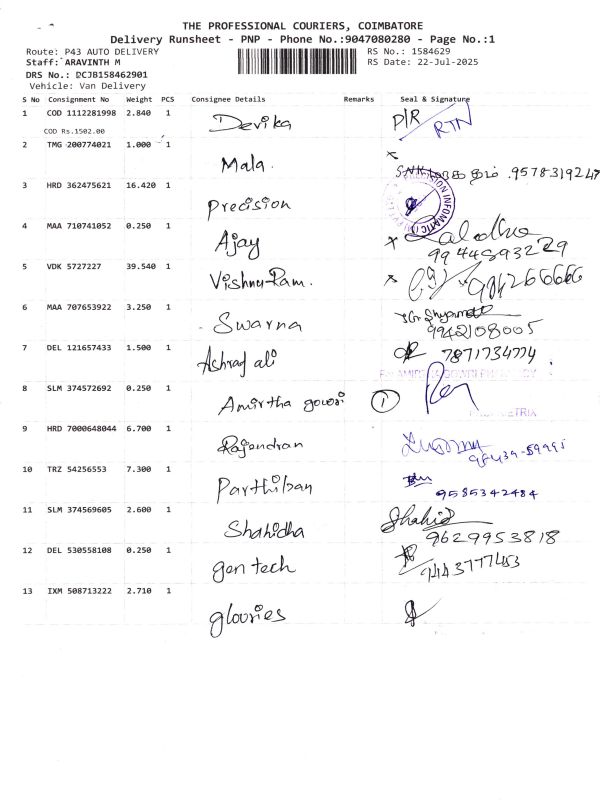 THE PROFESSIONAL COURIERS, COIMBATORE
Delivery Runsheet - PNP - Phone No.:9047080280 - Page No.:1
Route: P43 AUTO DELIVERY RS No.: 1584629
Staff: ARAVINTH M RS Date: 22-Jul-2025
DRS No.: DCJB158462901
Vehicle: Van Delivery
S No Consignment No Weight PCS Consignee Details Remarks Seal & Signature
1 COD 1112281998 2.840 1 Devika P/R RTN
COD Rs.1502.00
2 TMG 200774021 1.000 1 Mala. 9578319247
3 HRD 362475621 16.420 1 Precision
4 MAA 710741052 0.250 1 Ajay
9944893229
5 VDK 5727227 39.540 1 Vishnu Ram.
6 MAA 707653922 3.250 1 Swarna
9942108005
7 DEL 121657433 1.500 1 Ashraf ali 7871734774
8 SLM 374572692 0.250 1 Amirtha gowri 1
9 HRD 7000648044 6.700 1 Rajendran
10 TRZ 54256553 7.300 1 Parthiban
9585342484
11 SLM 374569605 2.600 1 Shahidha Shahid
9629953818
12 DEL 530558108 0.250 1 gen tech
9443777453
13 IXM 508713222 2.710 1 glovries